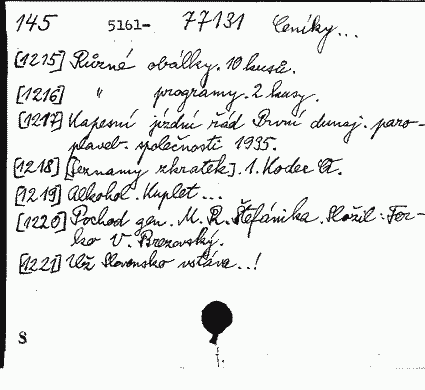 145 5161- 77131 Ceníky...
[1215] Různé obálky. 10 kusů.
[1216] " programy. 2 kusy.
[1217] Kapesní jízdní řád První dunaj. paro-
plaveb. společnosti 1935.
[1218] [Seznamy zkratek]. 1. Kodec A.
[1219] Alkohol. Kuplet...
[1220] Pochod gen. M. R. Štefánika. Složil: Fer-
ko V. Brezovský.
[1221] Už Slovensko vstáva..!
8